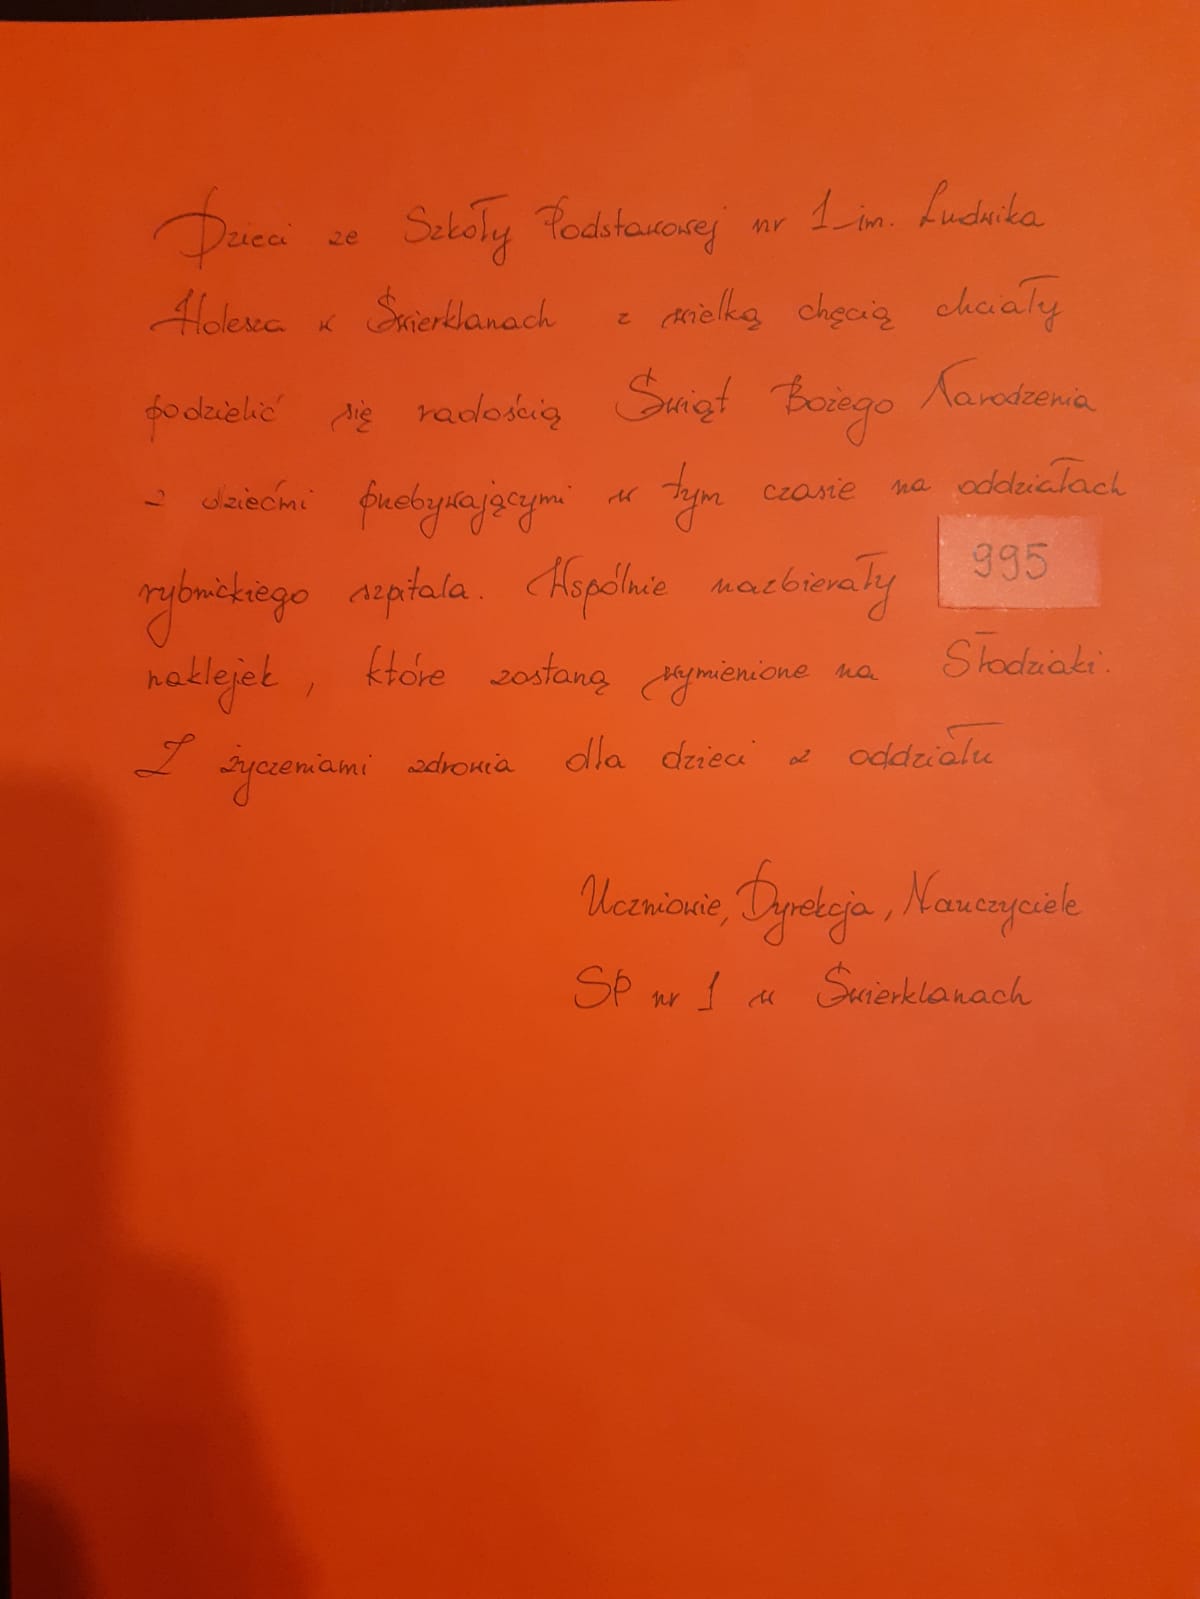 Dzieci ze Szkoły Podstawowej nr 1 im. Ludwika
Holesza w Świerklanach z wielką chęcią chciały
podzielić się radością Świąt Bożego Narodzenia
z dziećmi przebywającymi w tym czasie na oddziałach
rybnickiego szpitala. Wspólnie nazbierały 995
naklejek, które zostaną wymienione na Słodziaki.
Z życzeniami zdrowia dla dzieci z oddziału
Uczniowie, Dyrekcja, Nauczyciele
SP nr 1 w Świerklanach